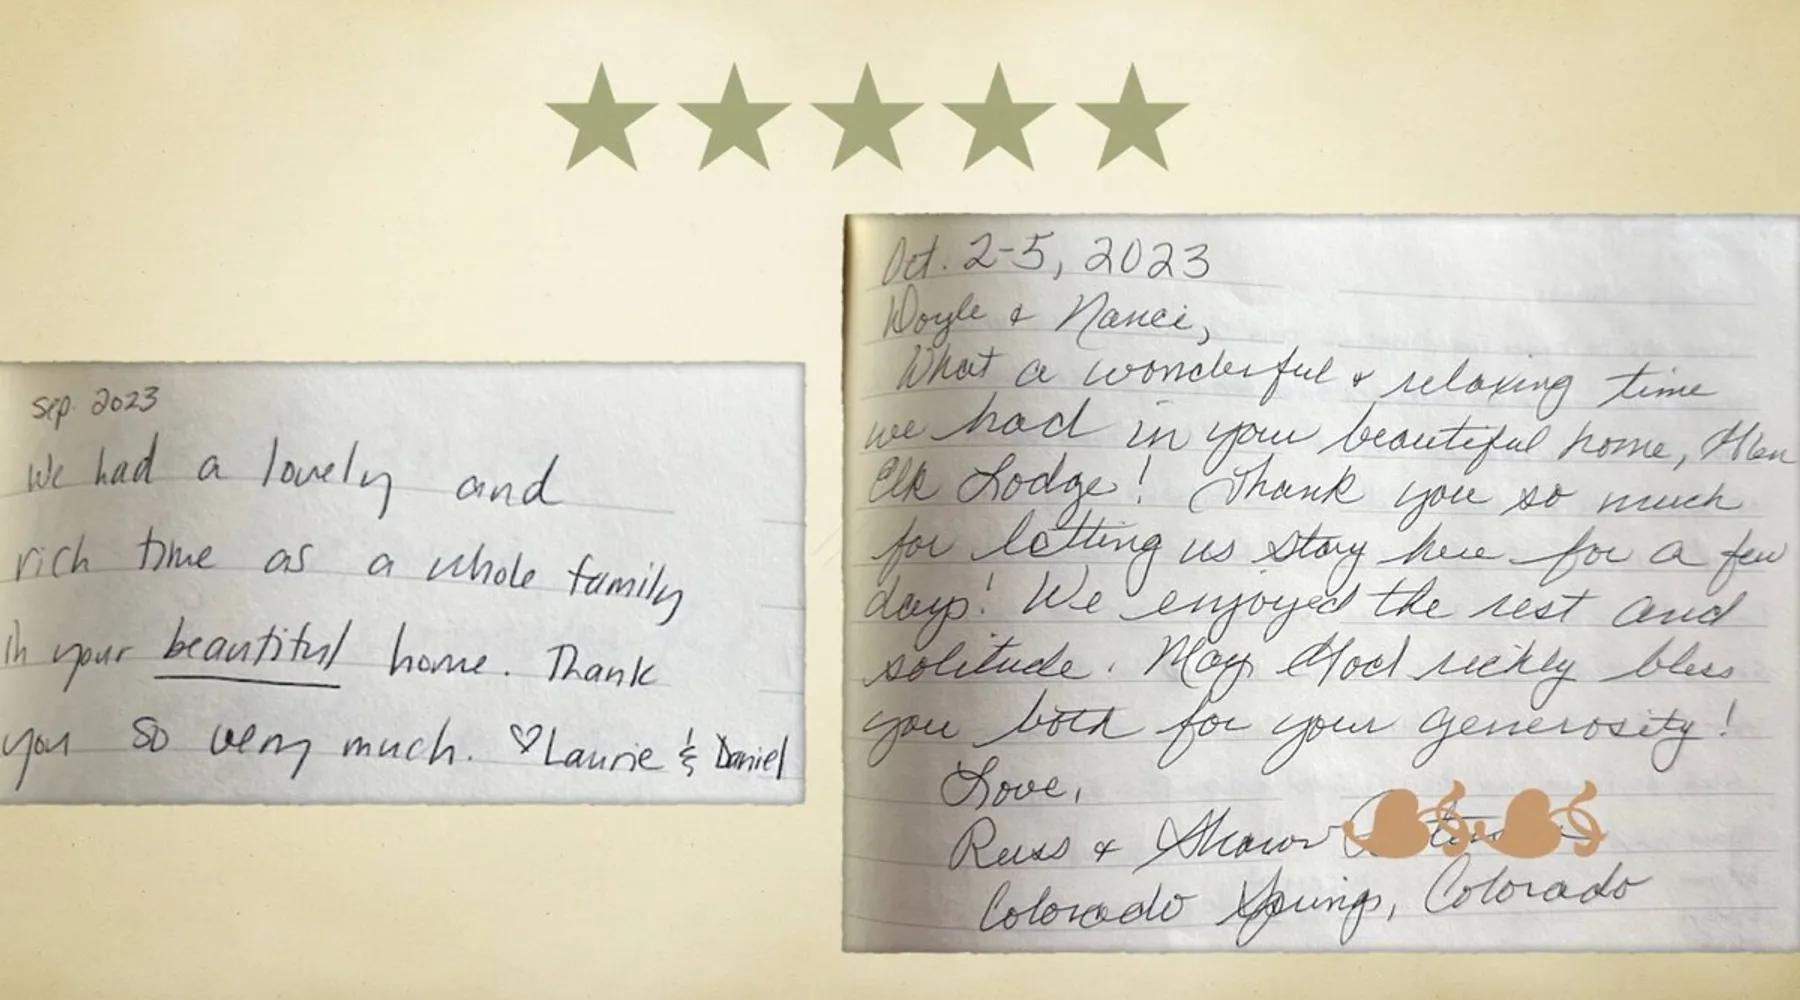 Sep. 2023
We had a lovely and
rich time as a whole family
in your beautiful home. Thank
you so very much. ♡Laurie & Daniel
Oct. 2-5, 2023
Doyle & Nanci,
What a wonderful & relaxing time
we had in your beautiful home, Glen
Elk Lodge! Thank you so much
for letting us stay here for a few
days! We enjoyed the rest and
solitude. May God richly bless
you both for your generosity!
Love,
Russ & Shawn
Colorado Springs, Colorado